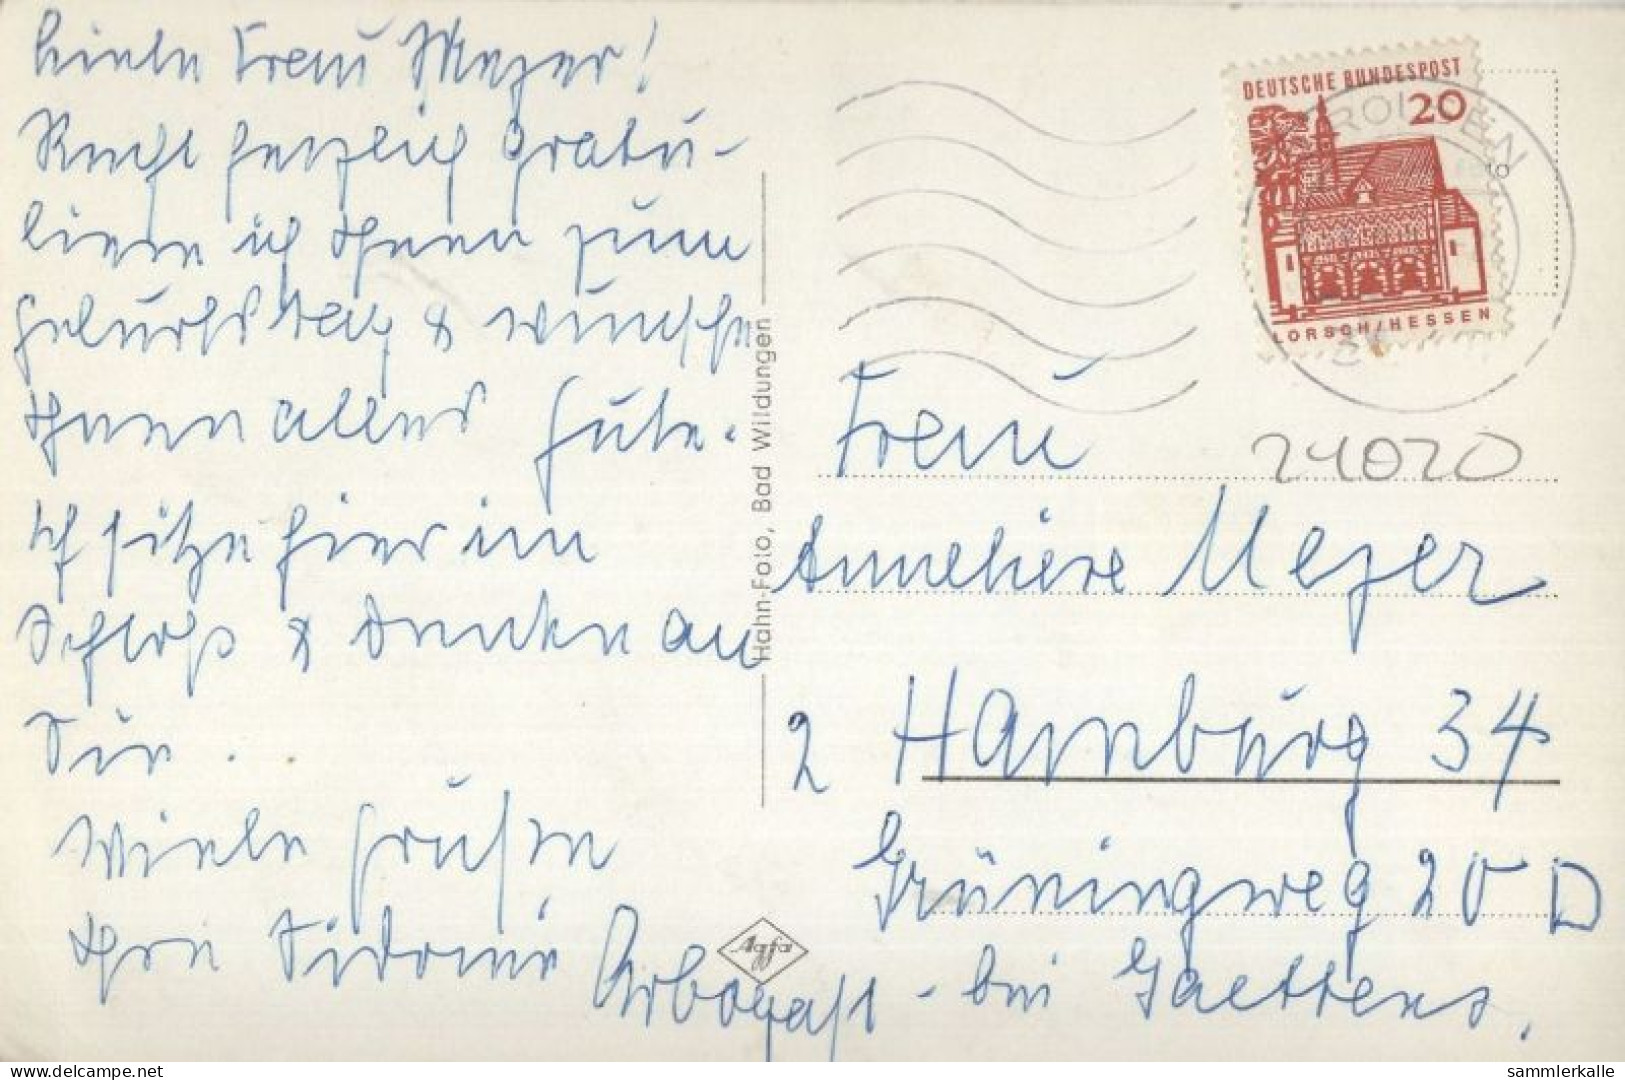 Liebe Frau Meyer!
Recht herzlich gratu-
liere ich Ihnen zum
Geburtstag & wünsche
Ihnen alles Gute.
Ich sitze hier im
Schloß & denke an
Sie.
Viele Grüße
Ihre Sidonie Arbogast
Hahn-Foto, Bad Wildungen
Agfa
DEUTSCHE BUNDESPOST
20
LORSCH/HESSEN
24020
Frau
Anneliese Meyer
2 Hamburg 34
Grüningweg 20 D
- bei Gaettens.
www.delcampe.net
sammlerkalle